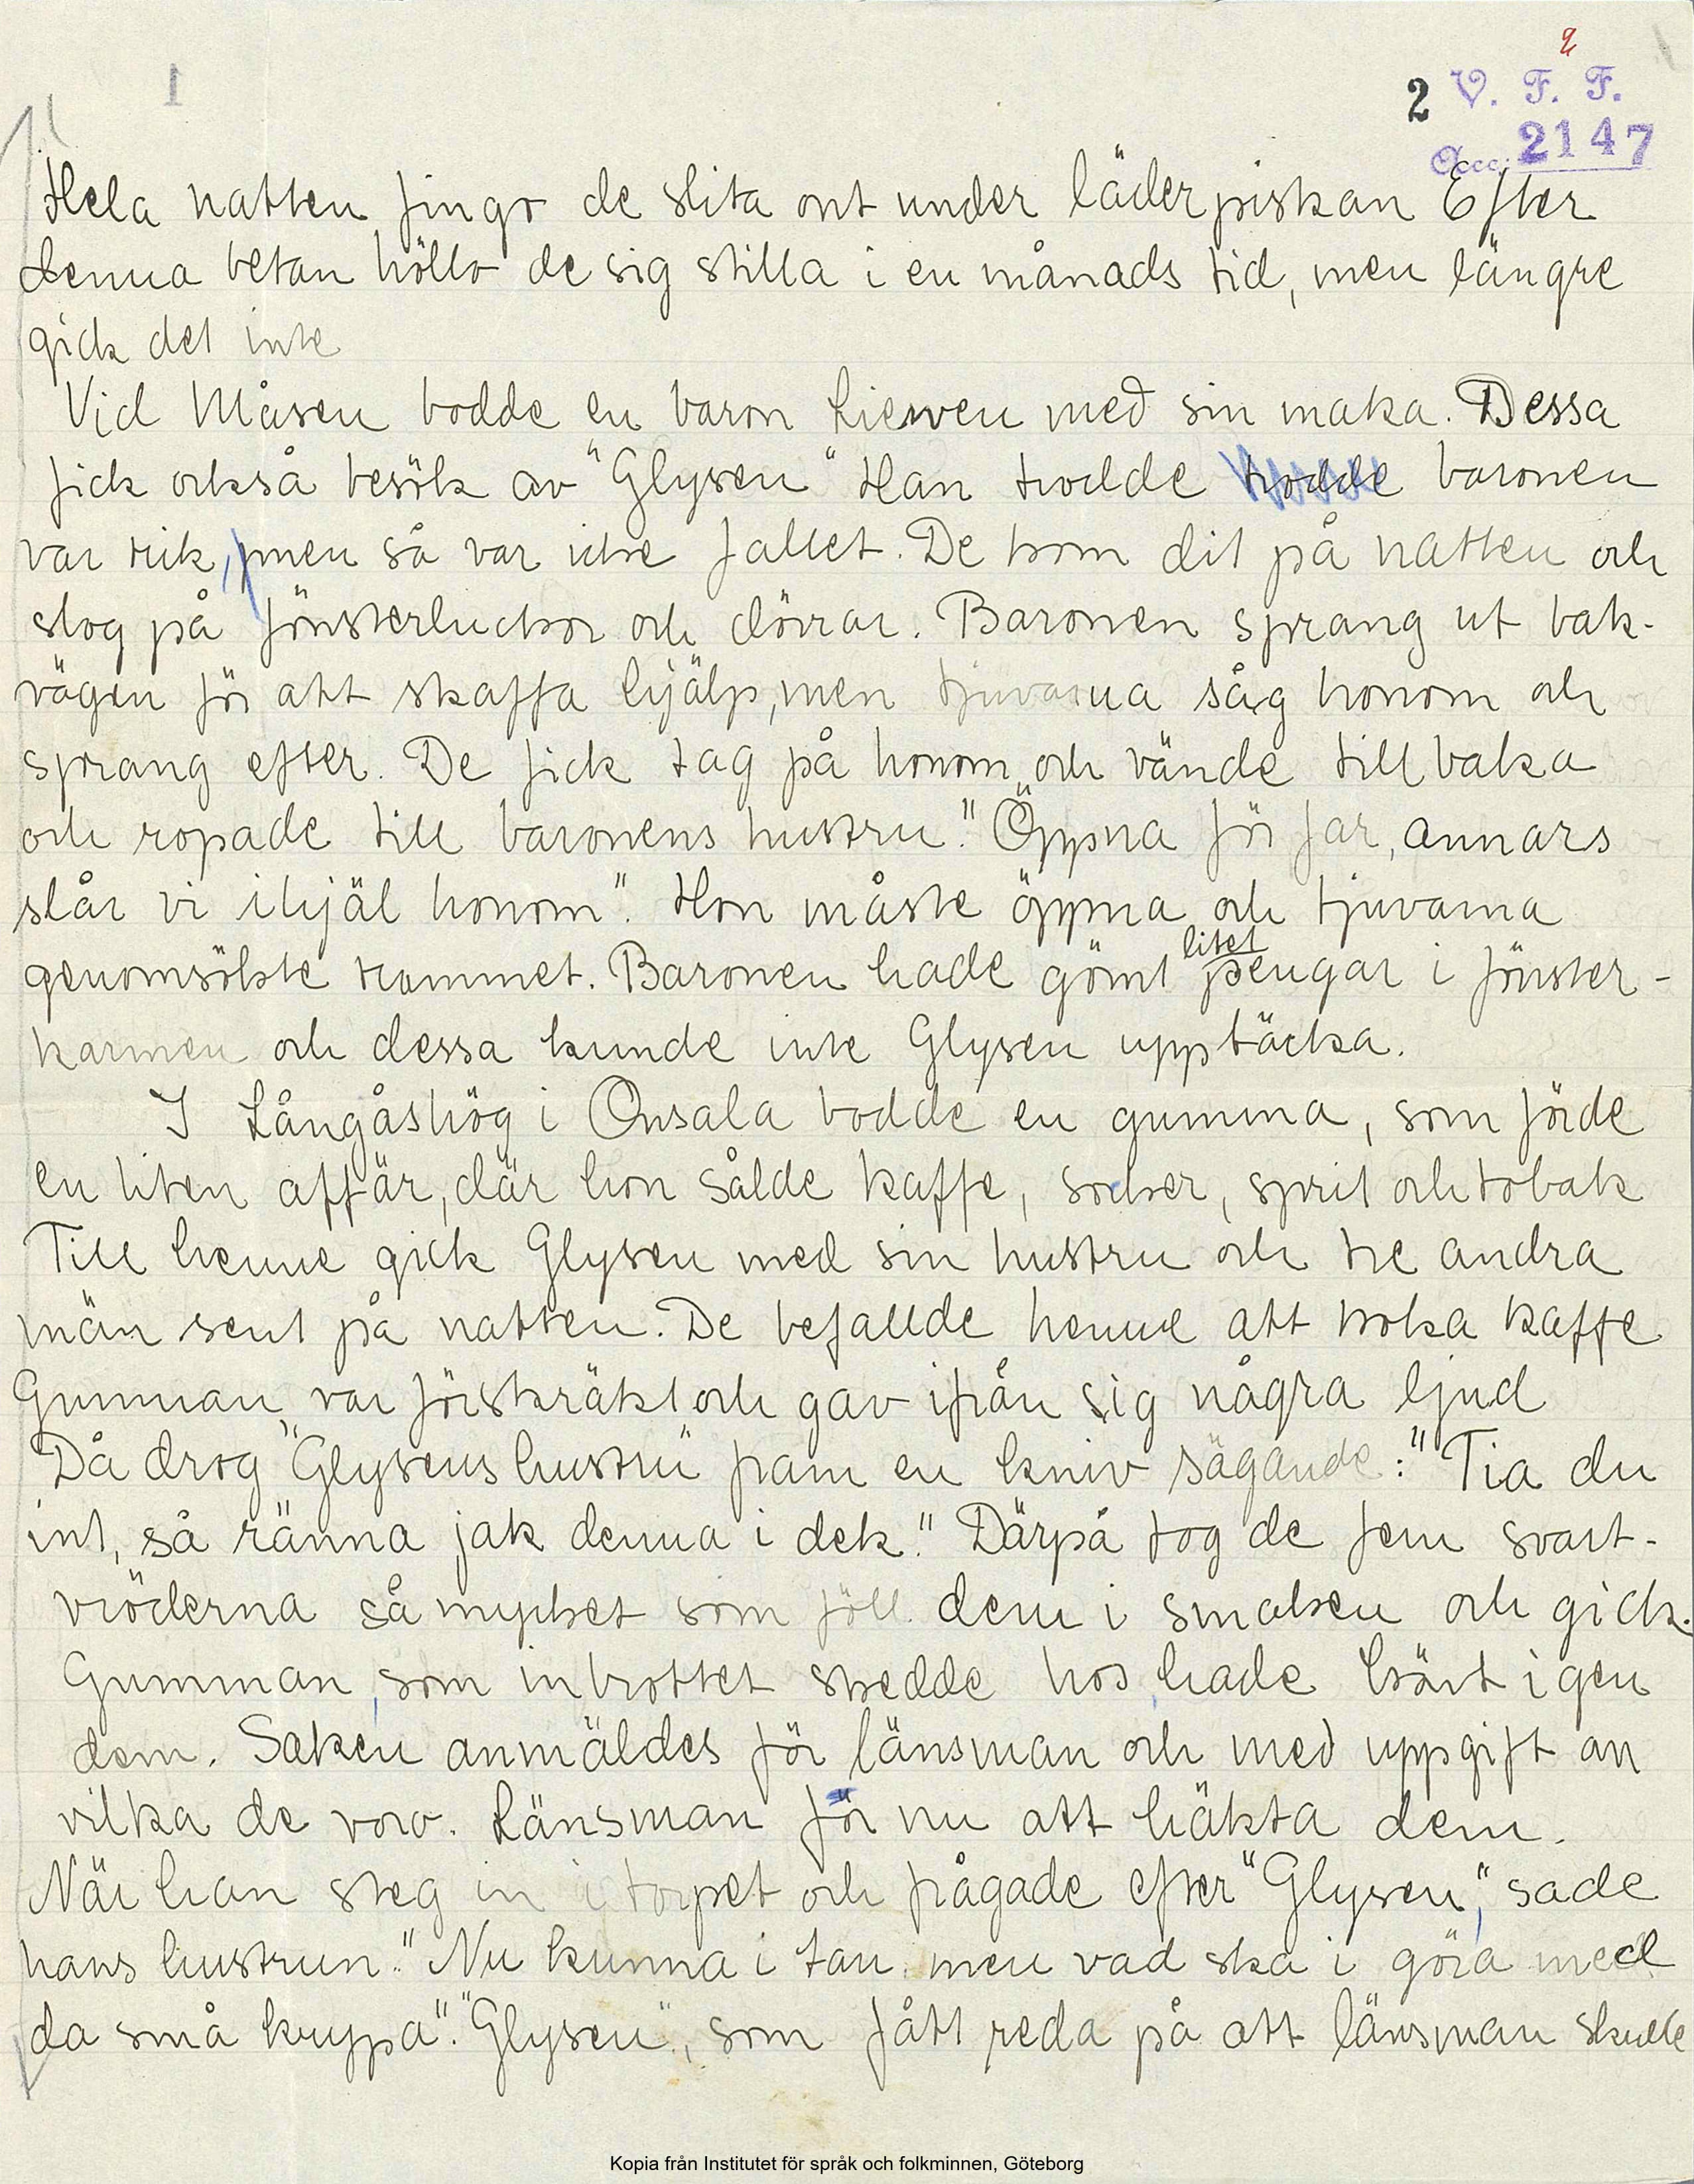 2
1
2 V. F. F.
Acc. 2147
Hela natten fingo de slita ont under läderpiskan Efter
denna betan höllo de sig stilla i en månads tid, men längre
gick det inte
Vid Måsen bodde en baron Liewen med sin maka. Dessa
fick också besök av "Glysen" Han trodde trodde baronen
var rik, men så var icke fallet. De kom dit på natten och
slog på fönsterluckor och dörrar. Baronen sprang ut bak-
vägen för att skaffa hjälp, men tjuvarna såg honom och
sprang efter. De fick tag på honom och vände tillbaka
och ropade till baronens hustru." Öppna för far, annars
slår vi ihjäl honom". Hon måste öppna och tjuvarna
genomsökte rummet. Baronen hade gömt litet pengar i fönster-
karmen och dessa kunde inte Glysen upptäcka.
I Långåshög i Onsala bodde en gumma, som förde
en liten affär, där hon sålde kaffe, socker, sprit och tobak
Till henne gick Glysen med sin hustru och tre andra
män sent på natten. De befallde henne att koka kaffe
Gumman var förskräkt och gav ifrån sig några ljud
Då drog "Glysens hustru" fram en kniv sägande: "Tia du
int, så ränna jak denna i dek." Därpå tog de fem svart-
vröderna så mycket som föll dem i smaken och gick.
Gumman, som inbrottet skedde hos, hade känt igen
dem. Saken anmäldes för länsman och med uppgift om
vilka de voro. Länsman för nu att häkta dem.
När han steg in i torpet och frågade efter "Glysen", sade
hans hustrun." Nu kunna i tan men vad ska i göra med
da små krypa". "Glysen", som fått reda på att länsman skulle
Kopia från Institutet för språk och folkminnen, Göteborg